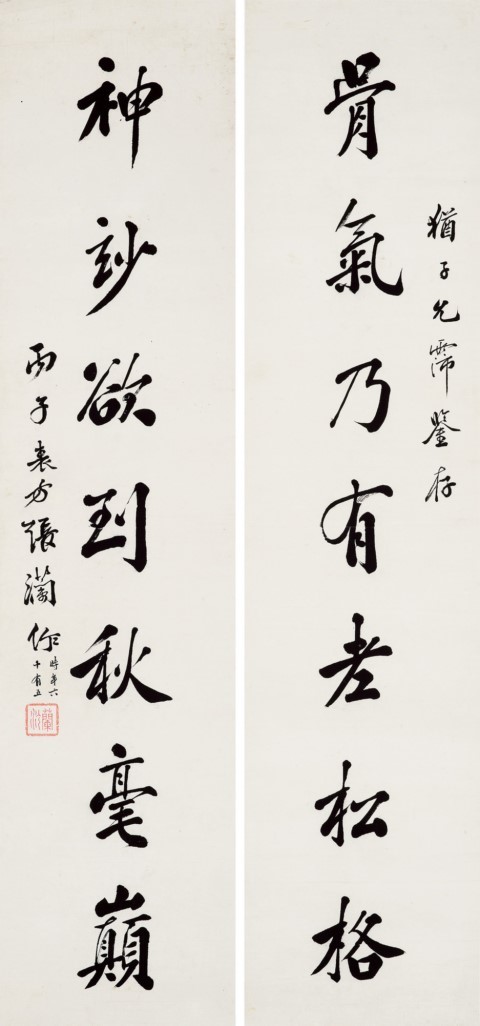 猶子先霈鑒存
骨氣乃有老松格
神玅欲到秋毫巔
丙子表方張瀾作
時年六
十有五